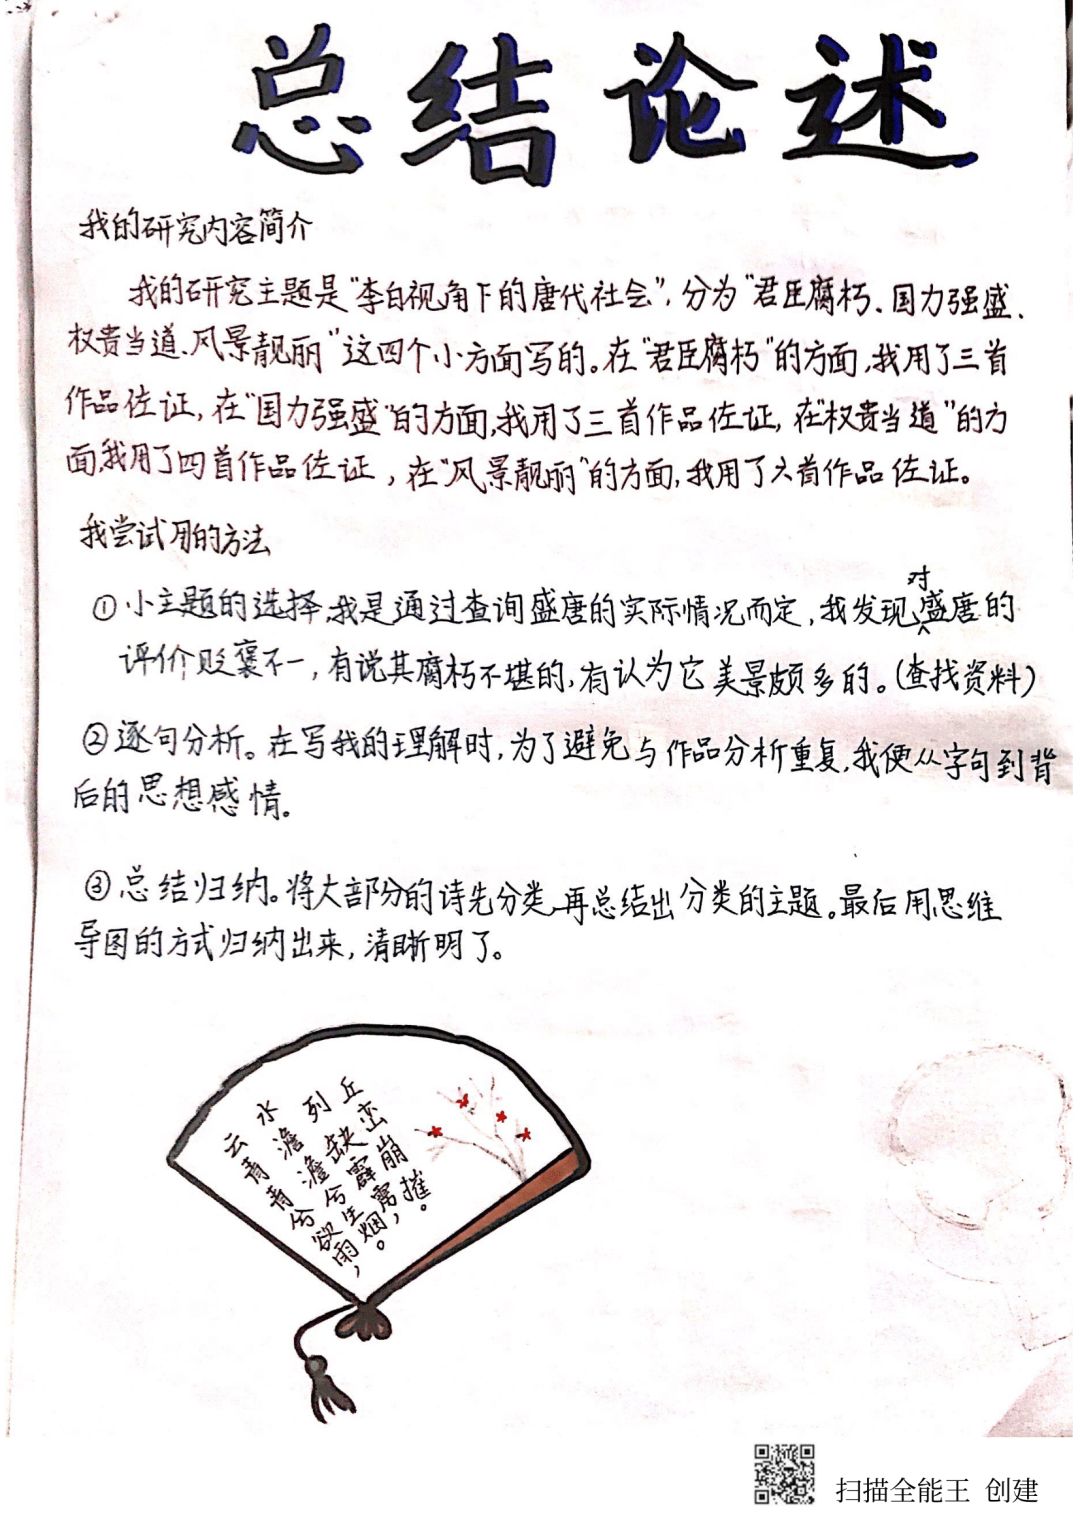 总结论述
我的研究内容简介
我的研究主题是“李白视角下的唐代社会”,分为“君臣腐朽、国力强盛、
权贵当道、风景靓丽”这四个小方面写的。在“君臣腐朽”的方面,我用了三首
作品佐证,在“国力强盛”的方面,我用了三首作品佐证,在“权贵当道”的方
面,我用了四首作品佐证,在“风景靓丽”的方面,我用了六首作品佐证。
我尝试用的方法
①小主题的选择,我是通过查询盛唐的实际情况而定,我发现对盛唐的
评价贬褒不一,有说其腐朽不堪的,有认为它美景颇多的。(查找资料)
②逐句分析。在写我的理解时,为了避免与作品分析重复,我便从字句到背
后的思想感情。
③总结归纳。将大部分的诗先分类,再总结出分类的主题。最后用思维
导图的方式归纳出来,清晰明了。
云青青兮欲雨,
水澹澹兮生烟。
列缺霹雳,
丘峦崩摧。
扫描全能王 创建